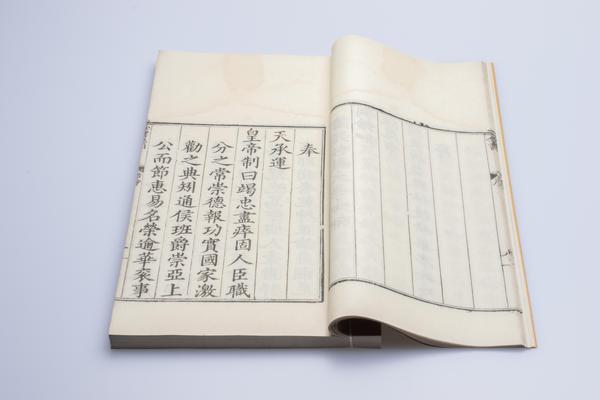 奉
天承運
皇帝制曰竭忠盡瘁固人臣職
分之常崇德報功實國家激
勸之典矧通侯班爵崇亞上
公而節惠易名榮逾華袞事